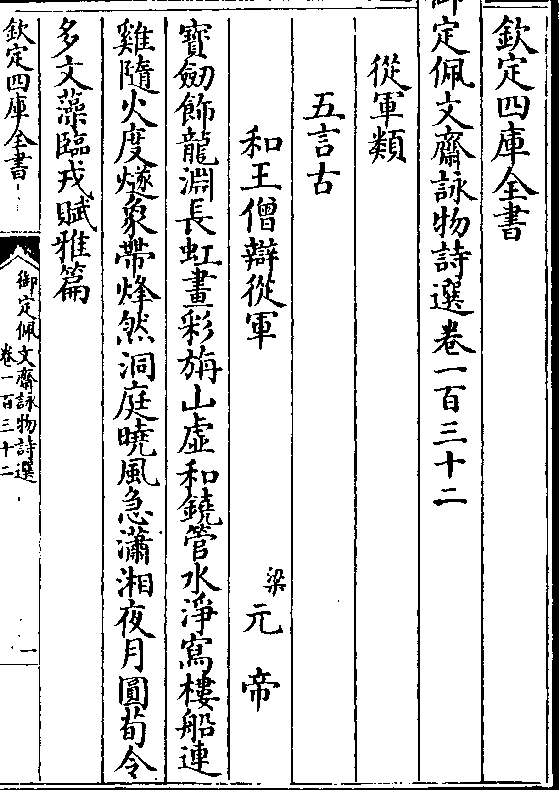 欽定四庫全書
御定佩文齋詠物詩選卷一百三十二
從軍類
五言古
和王僧辯從軍
梁元帝
寶劒飾龍淵長虹畫彩旃山虛和鐃管水淨寫樓船連
雞隨火度燧象帶烽然洞庭曉風急瀟湘夜月圓荀令
多文藻臨戎賦雅篇
欽定四庫全書
御定佩文齋詠物詩選
卷一百三十二
一